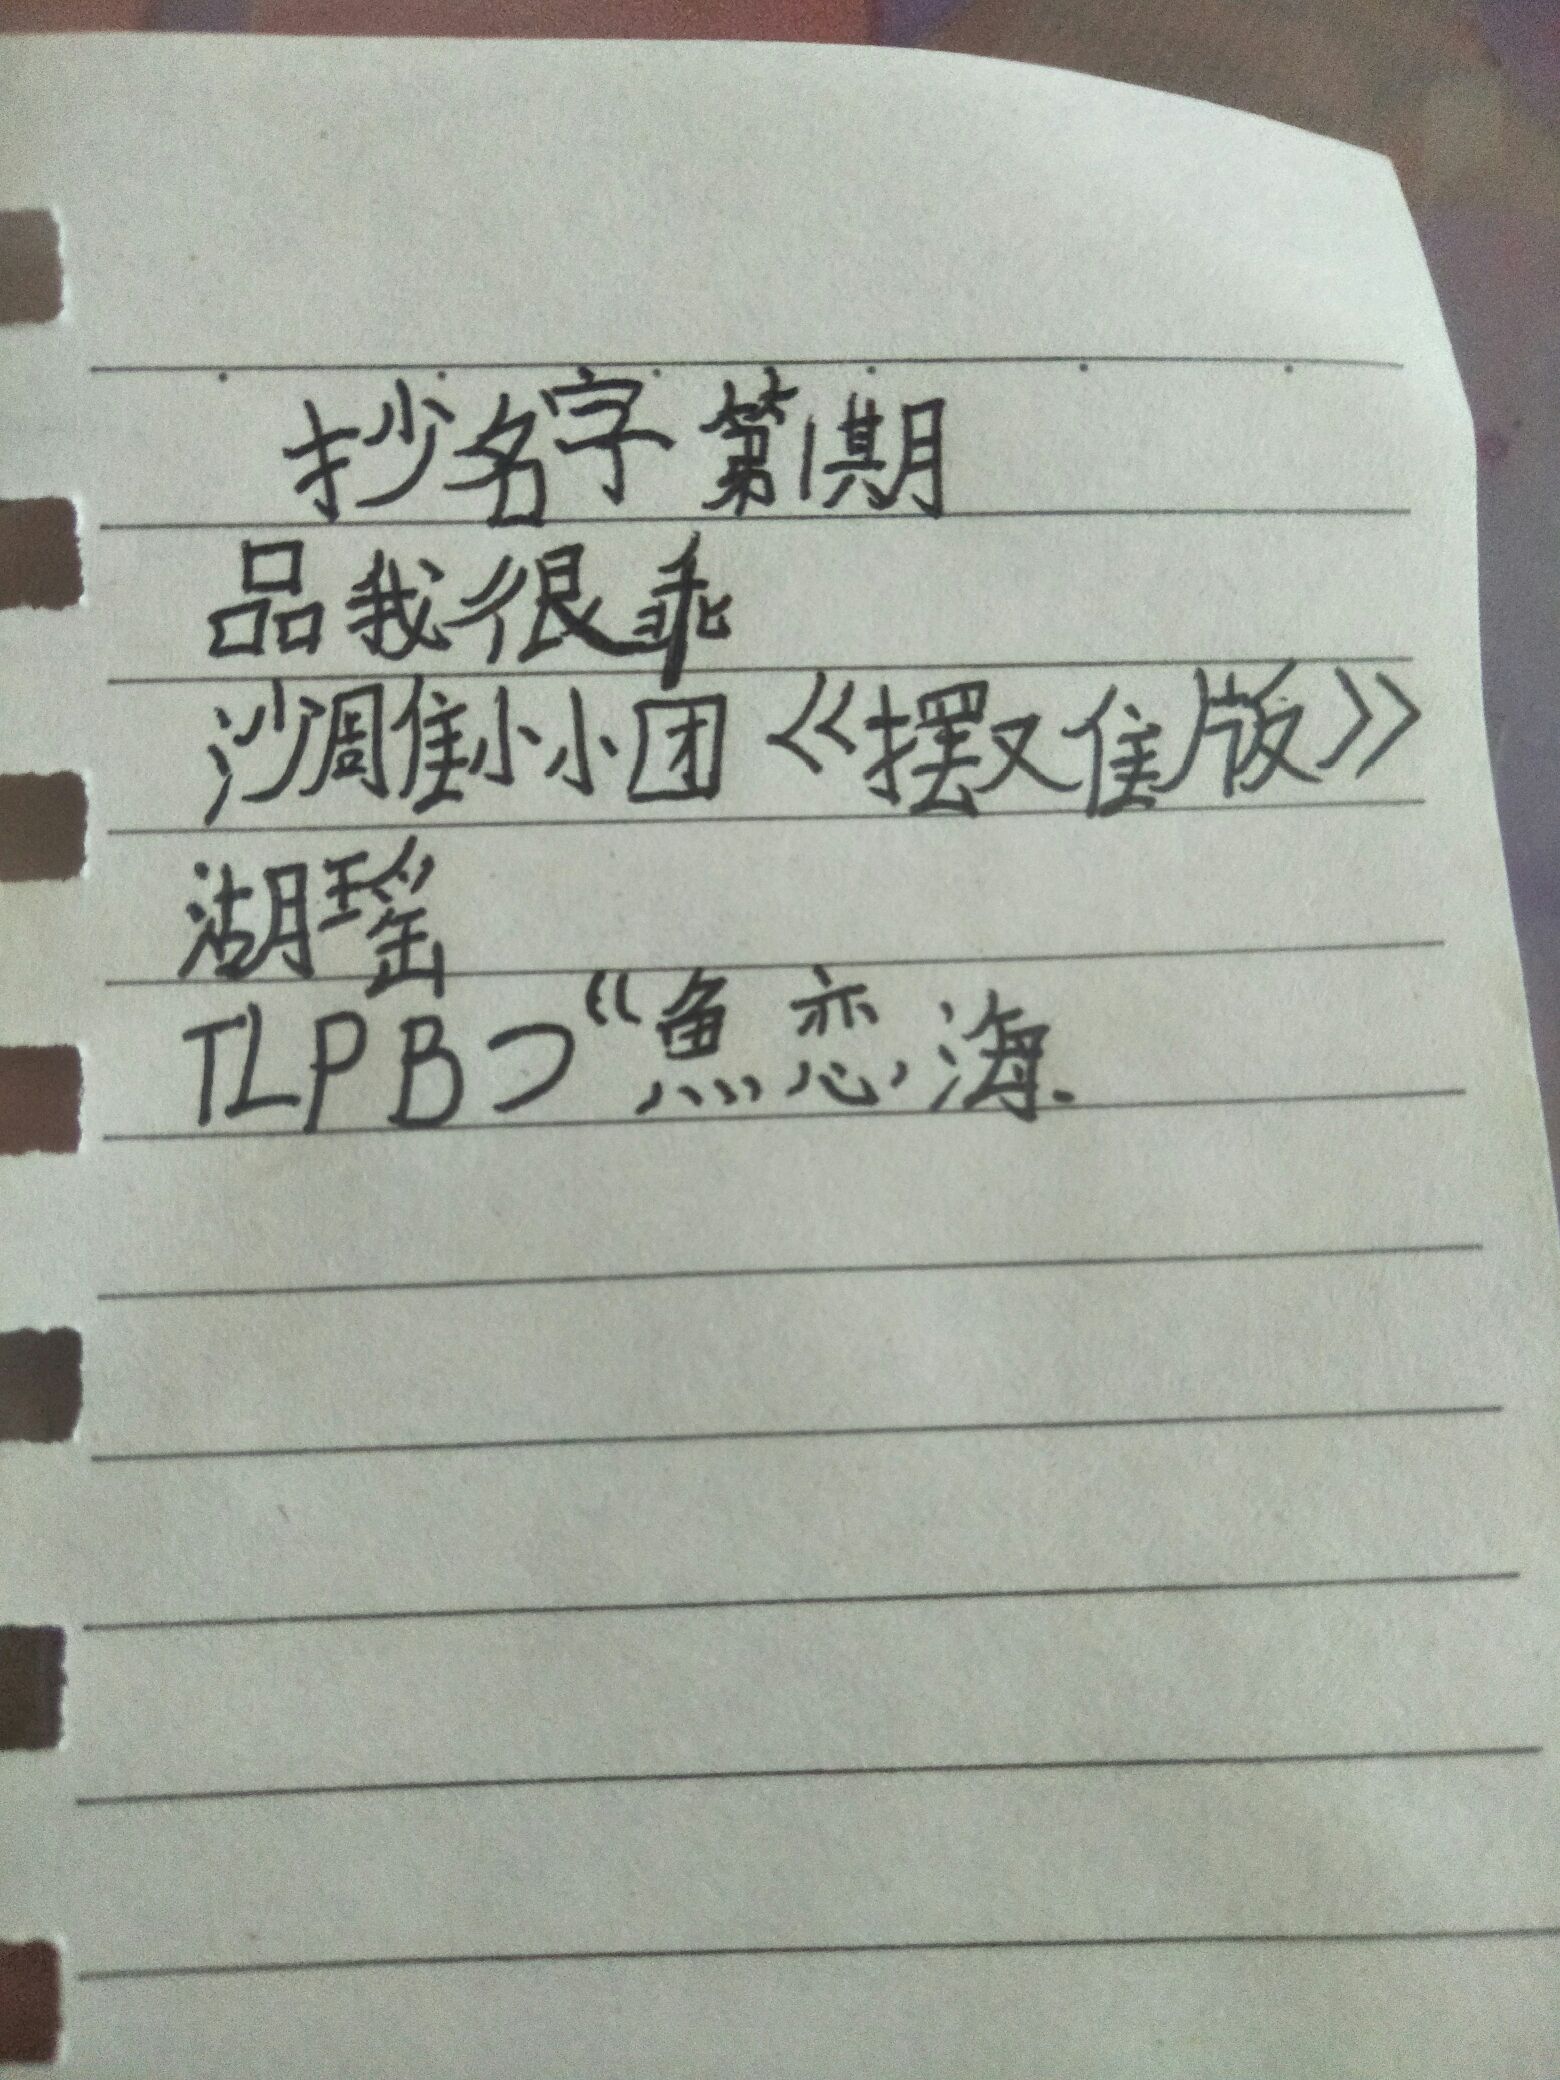 抄名字第1期
品我很乖
沙凋隹小小团《摆又隹版》
湖瑶
TLPBつ“鱼恋海.